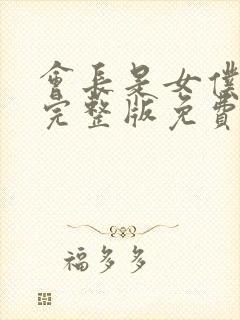 會長是女僕
完整版免費
福多多